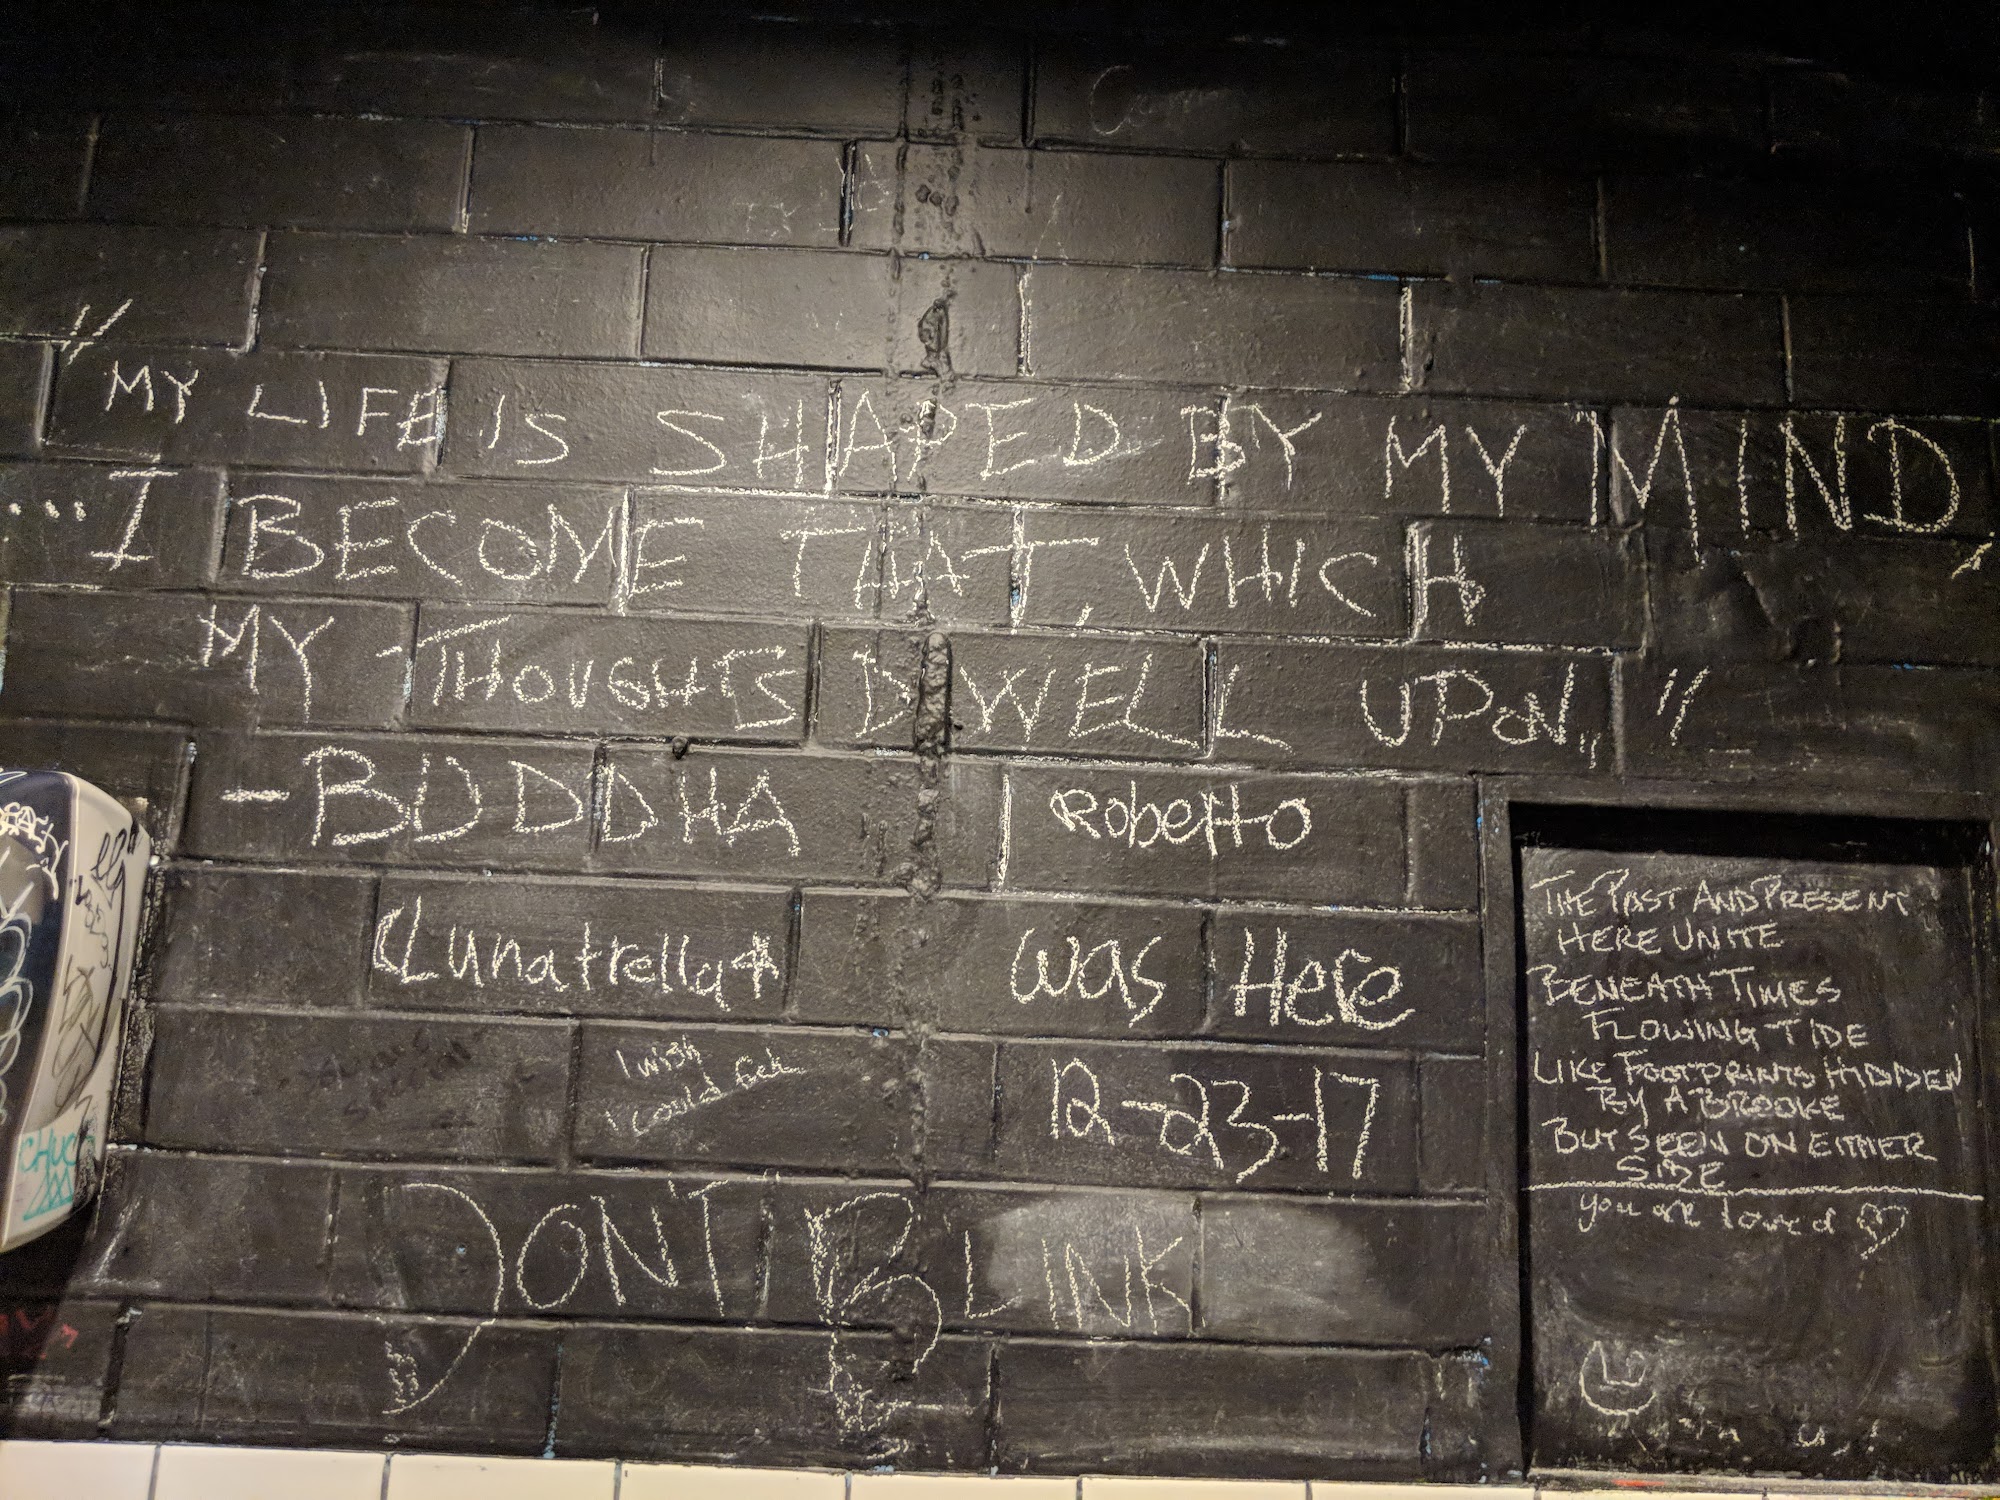 "MY LIFE IS SHAPED BY MY MIND,
...I BECOME THAT, WHICH
MY THOUGHTS DWELL UPON,,"
- BUDDHA
Roberto
Lunatrella
was Here
I wish
I could
12-23-17
DON'T BLINK
THE PAST AND PRESENT
HERE UNITE
BENEATH TIMES
FLOWING TIDE
LIKE FOOTPRINTS HIDDEN
BY A BROOKE
BUT SEEN ON EITHER
SIDE
you are loved
CHUC